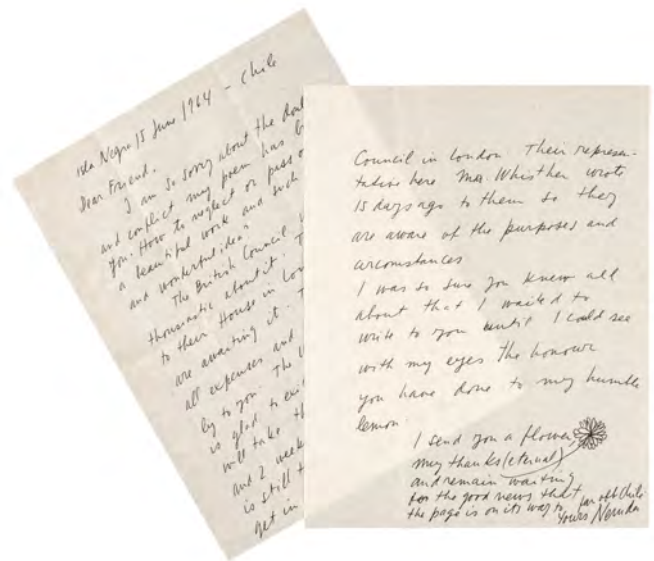 Isla Negra 15 June 1964 - Chile
Dear Friend,
I am so sorry about the
and conflict my poem has
you. How to neglect or pass
a beautiful work and such
and wonderful idea?
The British Council
thousiastic about it.
to their House in
are awaiting it.
all expenses and
ly to you. The
is glad to
will take
and 2 week
is still
get in
Council in London. Their represen-
tative here Mr. Whisther wrote
15 days ago to them so they
are aware of the purposes and
circumstances
I was so sure you knew all
about that I waited to
write to you until I could see
with my eyes the honour
you have done to my humble
lemon.
I send you a flower,
my thanks (eternal)
and remain waiting
for the good news that
the page is on its way to far off Chile
Yours Neruda